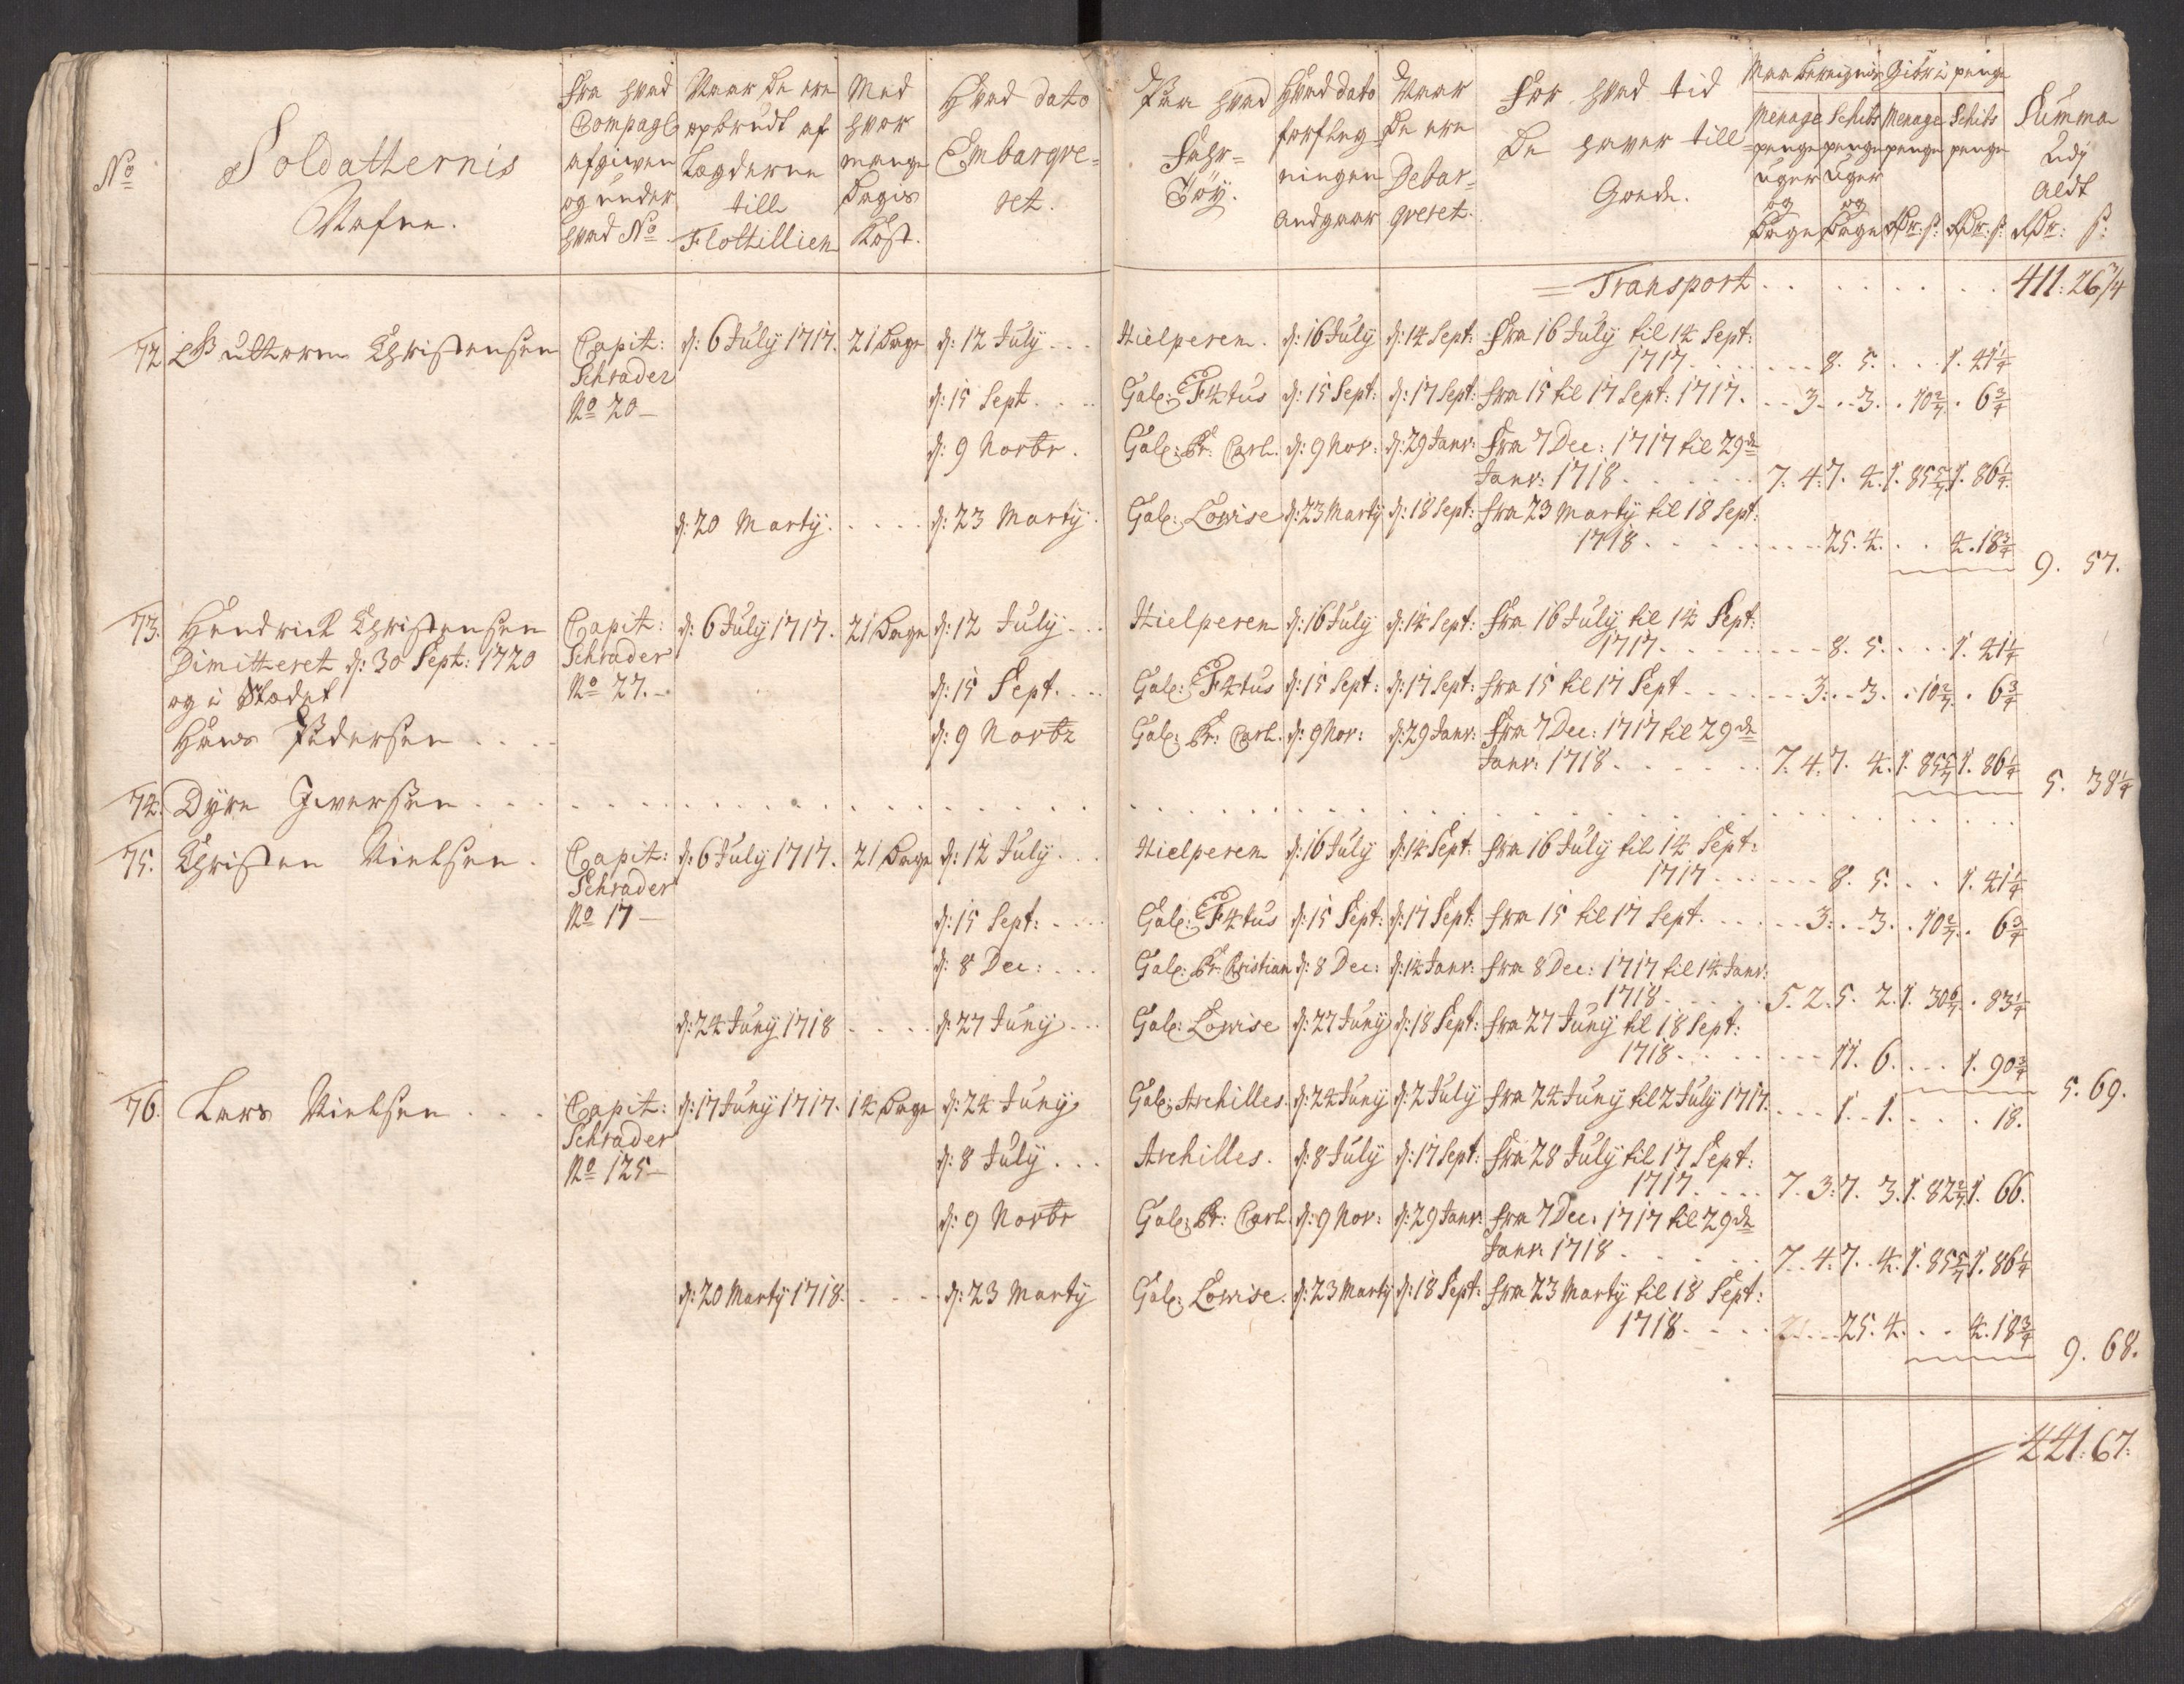 No
Soldatternis
Nafne.
Fra hvad
Compagl
afgiven
og under
hvad No
Naar De ere
opbrudt af
Lægderne
till
Flottillien
Med
hvor
mange
Dagis
Kost.
Hvad dato
Embarqve-
ret.
Paa hvad
Fahr-
Töy.
Hvad dato
forfleg-
ningen
andgaar
Naar
De ere
Debar-
qveret.
For hvad tid
De haver till
Gode.
Giör i penge
Menage penge uger og Dage
Schibs penge uger og Dage
Menage penge Rdr: s:
Schibs penge Rdr: s:
Summa
Udj
aldt
Rdr: s:
Transport . . . . . . . . 411: 26 3/4
72 Guttorm Christensen Capit: d: 6 July 1717. 21 Dage d: 12 July . . . Hielperen. d: 16 July d: 14 Sept: Fra 16 July til 14 Sept:
Schrader 1717 . . . . . . . 8. 5. . . . 1. 41 1/4
No 20 — d: 15 Sept . . . Gal: F4tus d: 15 Sept: d: 17 Sept: fra 15 til 17 Sept: 1717. . . 3. . . 3. . 10 2/7 . 6 3/4
d: 9 Novbr. Gal: Pr: Carl. d: 9 Nov: d: 29 Janv: Fra 7 Dec: 1717 til 29de
Janv: 1718 . . . . . . 7. 4. 7. 4. 1. 85 5/7 1. 86 1/4
d: 20 Marty. . . . . d: 23 Marty. Gal: Lovise d: 23 Marty d: 18 Sept: fra 23 Marty til 18 Sept:
1718 . . . . . . . . 25. 4. . . 4. 18 3/4
9. 57.
73. Hendrick Christensen Capit: d: 6 July 1717. 21 Dage d: 12 July . . . Hielperen d: 16 July d: 14 Sept: Fra 16 July til 14 Sept:
Dimitteret d: 30 Sept: 1720 Schrader 1717 . . . . . . . . 8. 5. . . . 1. 41 1/4
og i Stædet No 27. — d: 15 Sept. . . Gal: F4tus d: 15 Sept: d: 17 Sept: fra 15 til 17 Sept . . . . . 3. . . 3. . 10 2/7 . 6 3/4
Hans Pedersen . . . . d: 9 Novbr Gal: Pr: Carl. d: 9 Nov: d: 29 Janv: Fra 7 Dec: 1717 til 29de
Janv: 1718 . . . . . . 7. 4. 7. 4. 1. 85 5/7 1. 86 1/4
5. 38 1/4
74. Dyre Iversen . . . . . . . . . . . .
75. Christen Nielsen. Capit: d: 6 July 1717. 21 Dage d: 12 July . . . Hielperen d: 16 July d: 14 Sept. fra 16 July til 14 Sept:
Schrader 1717 . . . . . . 8. 5. . . 1. 41 1/4
No 17 — d: 15 Sept: . . . Gal: F4tus d: 15 Sept: d: 17 Sept: fra 15 til 17 Sept. . . . . . 3. . . 3. . 10 2/7 . 6 3/4
d: 8 Dec: . . . Gal: Pr: Christian d: 8 Dec: d: 14 Janv: fra 8 Dec: 1717 til 14 Janv:
1718 . . . . . . 5. 2. 5. 2. 1. 30 6/7 . 83 1/4
d: 24 Juny 1718 . . . . d: 27 Juny . . . Gal: Lovise d: 27 Juny d: 18 Sept: fra 27 Juny til 18 Sept:
1718 . . . . . . . 11. 6. . . . 1. 90 3/4
5. 69.
76. Lars Nielsen . . . Capit: d: 17 Juny 1717. 14 Dage d: 24 Juny Gal: Archilles. d: 24 Juny d: 2 July fra 24 Juny til 2 July 1717. . . . 1. . 1. . . . . 18.
Schrader d: 8 July . . . Archilles. d: 8 July d: 17 Sept: fra 28 July til 17 Sept:
No 125 — 1717 . . . . 7. 3. 7. 3. 1. 82 2/7 1. 66.
d: 9 Novbr Gal: Pr: Carl. d: 9 Nov: d: 29 Janv: fra 7 Dec: 1717 til 29de
Janv: 1718 . . . . . 7. 4. 7. 4. 1. 85 5/7 1. 86 1/4
d: 20 Marty 1718. . . . . d: 23 Marty Gal: Lovise. d: 23 Marty d: 18 Sept: fra 23 Marty til 18 Sept:
1718 . . . . . . . 25. 4. . . 4. 18 3/4
9. 68.
441: 67: